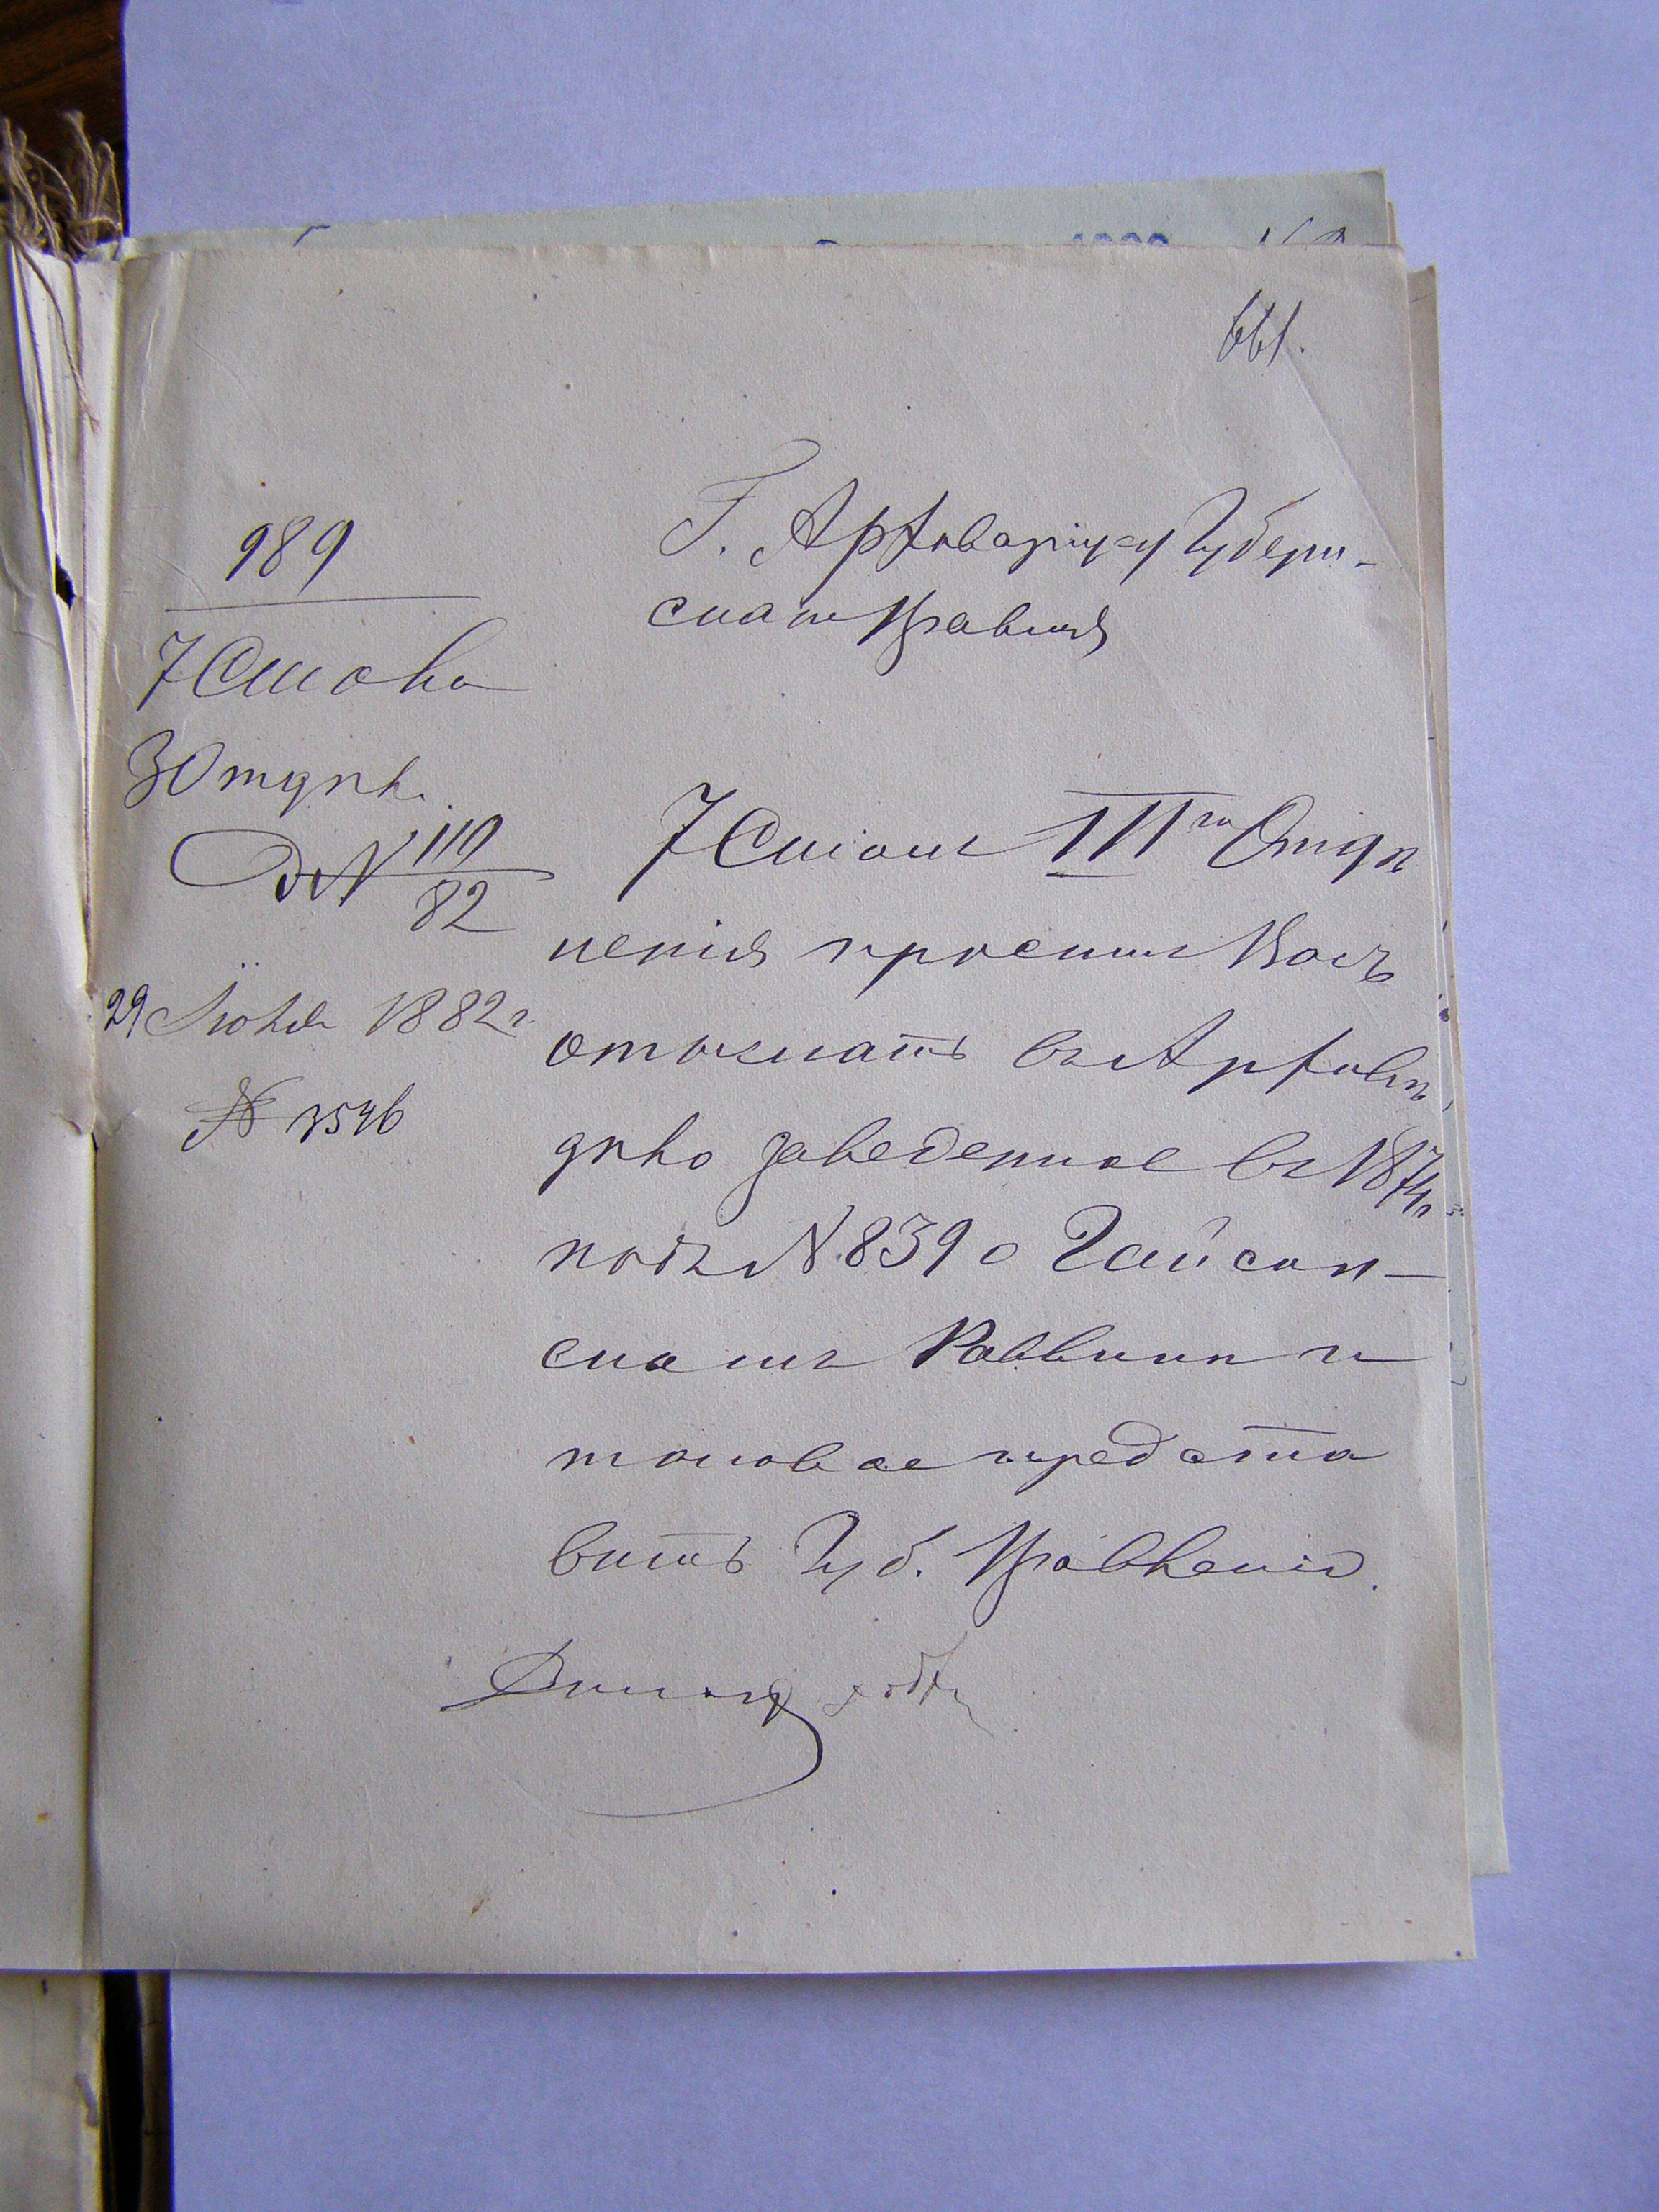 661.
989
7 Стола
3 Отдѣл.
Д № 110/82
29 Июля 1882 г.
№ 3546
Г. Архиваріусу Губерн-
скаго Правленія
7 Столъ III го Отдѣ
ленія проситъ Васъ
отыскать въ Архивѣ
дѣло заведенное въ 1874 г
подъ № 839 о Гайсин-
скомъ Раввинѣ и
таковое предста
вить Губ. Правленію.